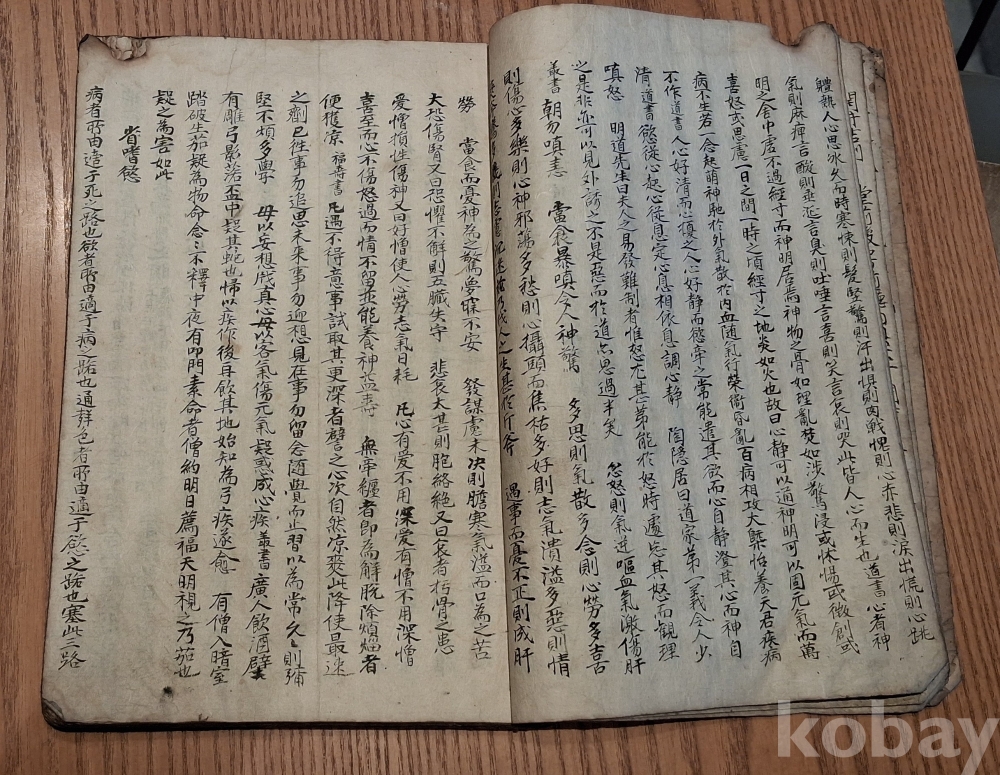 體熱人心思氷久而時寒悚則髮堅驚則汗出惧則肉戦愧則心赤悲則淚出慌則心跳
氣則麻痺言酸則垂涎言臭則吐唾言喜則笑言哀則哭此皆人心而生也道書心者神
明之舍中虛不過經寸而神明居焉神物之滑如理亂棼如涉驚浸或怵惕或懲創或
喜怒或思慮一日之間一時之頃經寸之地炎如火也故曰心静可以通神明可以固元氣而萬
病不生若一念起萌神馳於外氣散於内血随氣行榮衛昏亂百病相攻大槩怡養天君疾病
不作道書人心好清而心擾之人心好静而慾牽之常能遣其欲而心自静澄其心而神自
清道書慾從心起心從息定心息相依息調心静 陶隱居曰道家第一義令人少
嗔怒 明道先生曰夫人之易發難制者惟怒尤甚苐能於怒時遽忘其怒而觀理
之是非亦可以見外誘之不是惡而於道亦思過半矣 忿怒則氣逆嘔血氣激傷肝
叢書 朝勿嗔恚 當食暴嗔令人神驚 多思則氣散多念則心勞多言
則傷心多樂則心神邪蕩多愁則心攝頤而焦枯多好則志氣潰溢多惡則情
遇事而憂不正則成肝
勞 當食而憂神為之驚夢寐不安 發謀慮未决則膽寒氣溢而口為之苦
大恐傷腎又曰恐懼不解則五臟失守 悲哀太甚則胞絡絶又曰哀者朽骨之患
愛憎損性傷神又曰好憎使人心勞志氣日耗 凡心有愛不用深愛有憎不用深憎
喜至而心不傷怒過而情不留並能養神益壽 無牽纏者即為解脫除煩熘者
便獲凉 福壽書 凡遇不得意事試取其更深者譬之心次自然凉爽此降住最速
之劑 已徃事勿追思未來事勿迎想見在事勿留念随覺而止習以為常久久則彌
堅不煩多學 毋以妄想戕真心毋以客氣傷元氣疑惑成心疾叢書廣人飮酒壁
有雕弓影落盃中疑其蛇也㱕以疾作後再飮其地始知為弓疾遂愈 有僧入暗室
踏破生茄疑為物命念念不釋中夜有叩門素命者僧約明日薦福天明視之乃茄也
疑之為害如此
省嗜慾
病者所由適于死之路也欲者所由適于病之路也通群色者所由適于慾之路也塞此三路
kobay